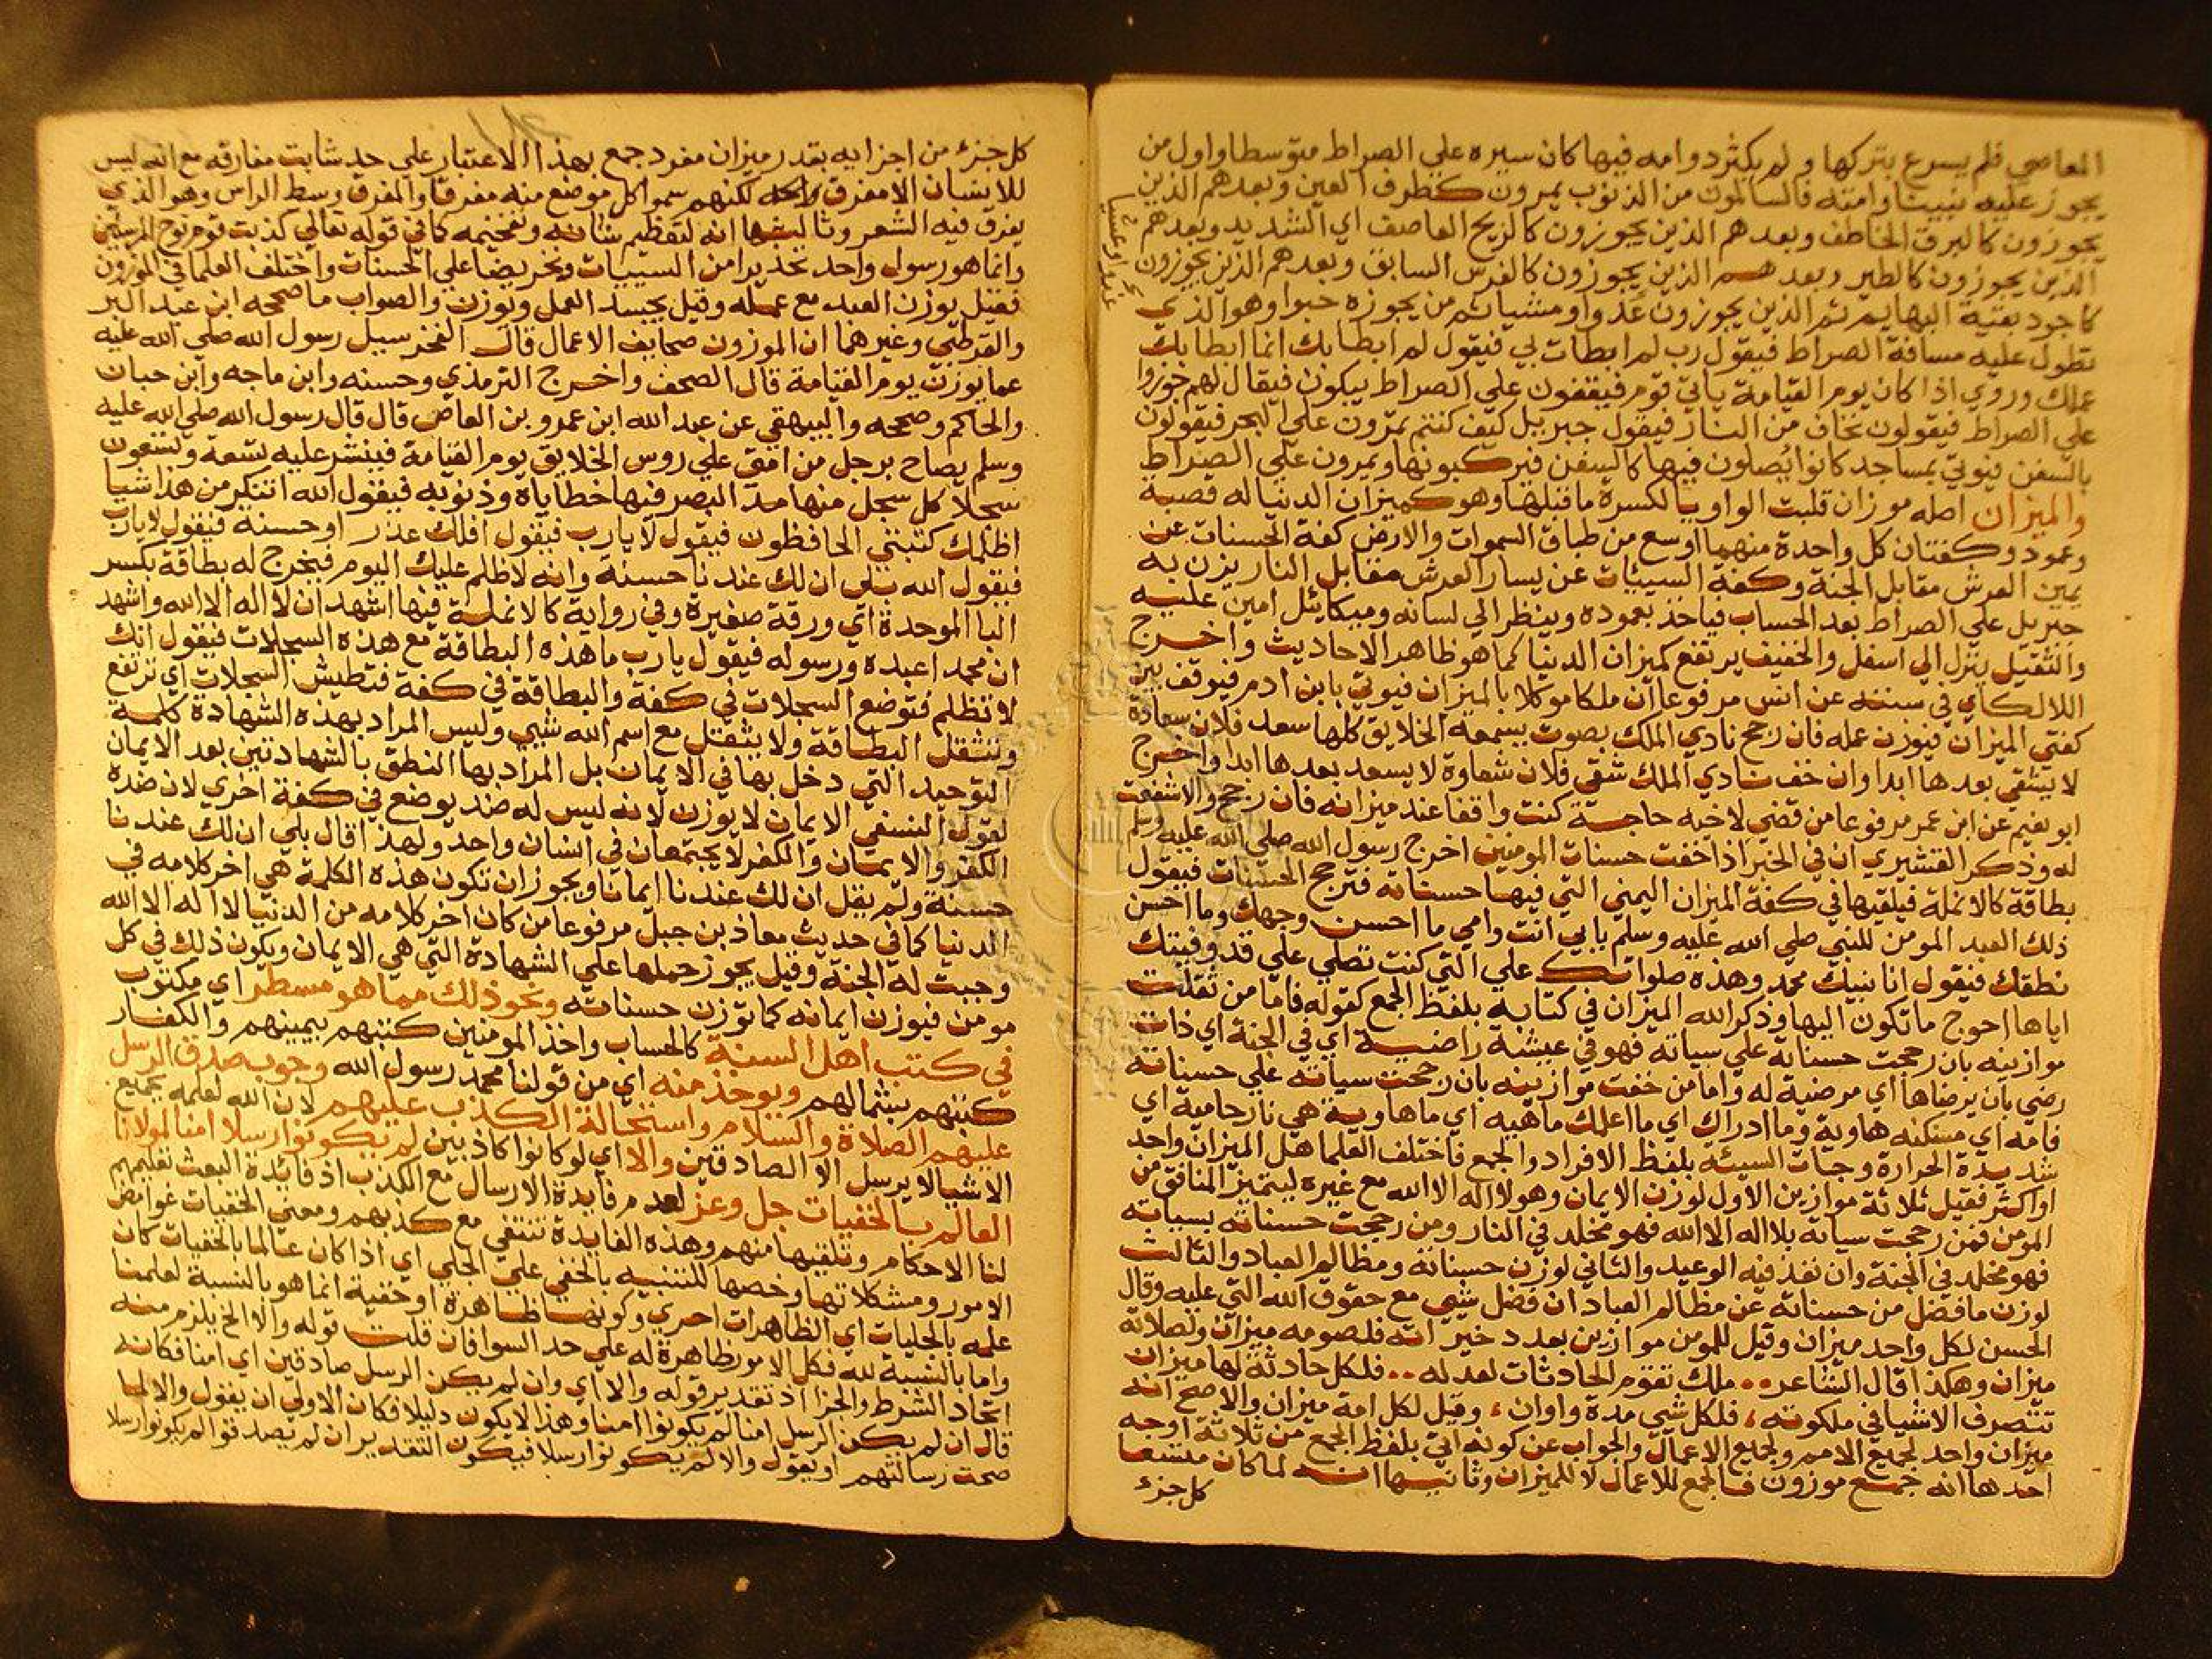 المعاصي فلم يسرع بتركها ولم يكثر دوامه فيها كان سيره علي الصراط متوسطا واول من
يجوز عليه نبينا وامته فالسالمون من الذنوب يمرون كطرف العين وبعدهم الذين
يجوزون كالبرق الخاطف وبعدهم الذين يجوزون كالريح العاصف اي الشديد وبعدهم
الذين يجوزون كالطير وبعدهم الذين يجوزون كالفرس السابق وبعدهم الذين يجوزون
كاجود بقية البهايم ثم الذين يجوزون عدوا ومشيا ثم من يجوزه حبوا وهو الذي
تطول عليه مسافة الصراط فيقول رب لم ابطات بي فيقول لم ابطا بك انما ابطا بك
عملك وروي اذا كان يوم القيامة ياتي قوم فيقفون علي الصراط يبكون فيقال لهم جوزوا
علي الصراط فيقولون نخاف من النار فيقول جبريل كيف كنتم تمرون علي البحر فيقولون
بالسفن فيوتي بمساجد كانوا يصلون فيها كالسفن فيركبونها ويمرون علي الصراط
والميزان اصله موزان قلبت الواو يا لكسرة ما قبلها وهو كميزان الدنيا له قصبة
وعمود وكفتان كل واحدة منهما اوسع من طباق السموات والارض كفة الحسنات عن
يمين العرش مقابل الجنة وكفة السيئات عن يسار العرش مقابل النار يزن به
جبريل علي الصراط بعد الحساب فياخذ بعموده وينظر الي لسانه وميكائيل امين عليه
والثقيل ينزل الي اسفل والخفيف يرتفع كميزان الدنيا كما هو ظاهر الاحاديث واخرج
اللالكاي في سننه عن انس مرفوعا ان ملكا موكلا بالميزان فيوتي بابن ادم فيوقف بين
كفتي الميزان فيوزن عمله فان رجح نادي الملك بصوت يسمعه الخلايق كلها سعد فلان سعادة
لا يشقي بعدها ابدا وان خف نادي الملك شقي فلان شقاوة لا يسعد بعدها ابدا واخرج
ابو نعيم عن ابن عمر مرفوعا من قضي لاخيه حاجة كنت واقفا عند ميزانه فان رجح والا شفعت
له وذكر القشيري ان في الخبر اذا خفت حسنات المومنين اخرج رسول الله صلي الله عليه وسلم
بطاقة كالانملة فيلقيها في كفة الميزان اليمني التي فيها حسناته فترجح الحسنات فيقول
ذلك العبد المومن للنبي صلي الله عليه وسلم بابي انت وامي ما احسن وجهك وما احسن
نطقك فيقول انا نبيك محمد وهذه صلواتك علي التي كنت تصلي علي قد وفيتك
اياها احوج ما تكون اليها وذكر الله الميزان في كتابه بلفظ الجمع كقوله فاما من ثقلت
موازينه بان رجحت حسناته علي سياته فهو في عيشة راضية اي في الجنة اي ذات
رضي بان يرضاها اي مرضية له واما من خفت موازينه بان رجحت سياته علي حسناته
فامه اي مسكنه هاوية وما ادراك اي ما اعلمك ماهيه اي ما هاوية هي نار حامية اي
شديدة الحرارة وجات السيئة بلفظ الافراد والجمع فاختلف العلما هل الميزان واحد
او اكثر فقيل ثلاثة موازين الاول لوزن الايمان وهو لا اله الا الله مع غيره ليتميز المنافق من
المومن فمن رجحت سياته بلا اله الا الله فهو مخلد في النار ومن رجحت حسناته بسياته
فهو مخلد في الجنة وان نفذ فيه الوعيد والثاني لوزن حسناته ومظالم العباد والثالث
لوزن ما فضل من حسناته عن مظالم العباد ان فضل شي مع حقوق الله التي عليه وقال
الحسن لكل واحد ميزان وقيل للمومن موازين بعدد خيراته فلصومه ميزان ولصلاته
ميزان وهكذا قال الشاعر ملك تقوم الحادثات لعدله فلكل حادثة لها ميزان
تتصرف الاشيا في ملكوته فلكل شي مدة واوان وقيل لكل امة ميزان والاصح انه
ميزان واحد لجميع الامم ولجميع الاعمال والجواب عن كونه اتي بلفظ الجمع من ثلاثة اوجه
احدها انه جمع موزون فالجمع للاعمال لا للميزان وثانيها انه لما كان متسعا
كل جزء
كل جزء من اجزايه بقدر ميزان مفرد جمع بهذا الاعتبار علي حد شابت مفارقه مع انه ليس
للانسان الا مفرق واحد لكنهم سموا كل موضع منه مفرقا والمفرق وسط الراس وهو الذي
يفرق فيه الشعر وثالثها انه لتعظيم شانه وتفخيمه كما في قوله تعالي كذبت قوم نوح المرسلين
وانما هو رسول واحد تحذيرا من السييات وتحريضا علي الحسنات واختلف العلما في الموزون
فقيل يوزن العبد مع عمله وقيل يجسد العمل ويوزن والصواب ما صححه ابن عبد البر
والقرطبي وغيرهما ان الموزون صحايف الاعمال قال الفخر سيل رسول الله صلي الله عليه
عما يوزن يوم القيامة قال الصحف واخرج الترمذي وحسنه وابن ماجه وابن حبان
والحاكم وصححه والبيهقي عن عبد الله ابن عمرو بن العاص قال قال رسول الله صلي الله عليه
وسلم يصاح برجل من امتي علي روس الخلايق يوم القيامة فينشر عليه تسعة وتسعون
سجلا كل سجل منها مد البصر فيها خطاياه وذنوبه فيقول الله اتنكر من هذا شيا
اظلمك كتبتي الحافظون فيقول لا يارب فيقول افلك عذر او حسنة فيقول لا يارب
فيقول الله بلي ان لك عندنا حسنة وانه لا ظلم عليك اليوم فيخرج له بطاقة بكسر
البا الموحدة اي ورقة صغيرة وفي رواية كالانملة فيها اشهد ان لا اله الا الله واشهد
ان محمدا عبده ورسوله فيقول يا رب ما هذه البطاقة مع هذه السجلات فيقول انك
لا تظلم فتوضع السجلات في كفة والبطاقة في كفة فتطيش السجلات اي ترتفع
وتثقل البطاقة ولا يثقل مع اسم الله شي وليس المراد بهذه الشهادة كلمة
التوحيد التي دخل بها في الايمان بل المراد بها النطق بالشهادتين بعد الايمان
لقول النسفي الايمان لا يوزن لانه ليس له ضد يوضع في كفة اخري لان ضده
الكفر والايمان والكفر لا يجتمعان في انسان واحد ولهذا قال بلي ان لك عندنا
حسنة ولم يقل ان لك عندنا ايمانا ويجوز ان تكون هذه الكلمة هي اخر كلامه في
الدنيا كما في حديث معاذ بن جبل مرفوعا من كان اخر كلامه من الدنيا لا اله الا الله
وجبت له الجنة وقيل يجوز حملها علي الشهادة التي هي الايمان ويكون ذلك في كل
مومن فيوزن ايمانه كما توزن حسناته ونحو ذلك مما هو مسطر اي مكتوب
في كتب اهل السنة كالحساب واخذ المومنين كتبهم بيمينهم والكفار
كتبهم بشمالهم ويوخذ منه اي من قولنا محمد رسول الله وجوب صدق الرسل
عليهم الصلاة والسلام واستحالة الكذب عليهم لان الله لعلمه بجميع
الاشيا لا يرسل الا الصادقين والا اي لو كانوا كاذبين لم يكونوا رسلا امنا لمولانا
العالم بالخفيات جل وعز لعدم فايدة الارسال مع الكذب اذ فايدة البعث تعليمهم
لنا الاحكام وتلقيها منهم وهذه الفايدة تنتفي مع كذبهم ومعني الخفيات غوامض
الامور ومشكلاتها وخصها للتنبيه بالخفي علي الجلي اي اذا كان عالما بالخفيات كان
علمه بالجليات اي الظاهرات احري وكونها ظاهرة او خفية انما هو بالنسبة لعلمنا
واما بالنسبة لله فكل الامور ظاهرة له علي حد السوا فان قلت قوله والا الخ يلزم منه
اتحاد الشرط والجزا اذ تقدير قوله والا اي وان لم يكن الرسل صادقين اي امنا فكانه
قال ان لم يكن الرسل امنا لم يكونوا امنا وهذا لا يكون دليلا فكان الاولي ان يقول والا لما
صحت رسالتهم او يقول والا لم يكونوا رسلا فيكون التقدير ان لم يصدقوا لم يكونوا رسلا